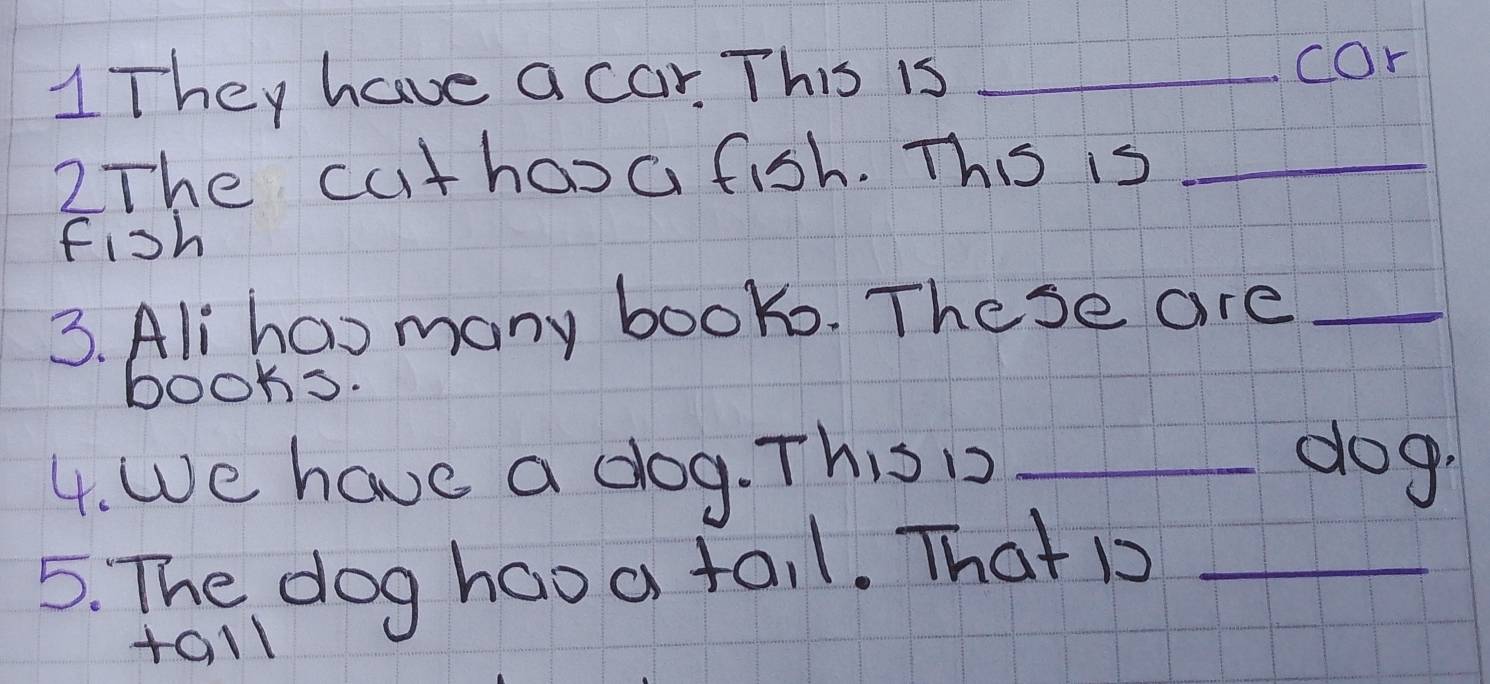 1 They have a car. This is ________. car
2 The cat has a fish. This is ________
fish
3. Ali has many books. These are ____
books.
4. We have a dog. This is ________ dog.
5. The dog has a tail. That is ________
tail